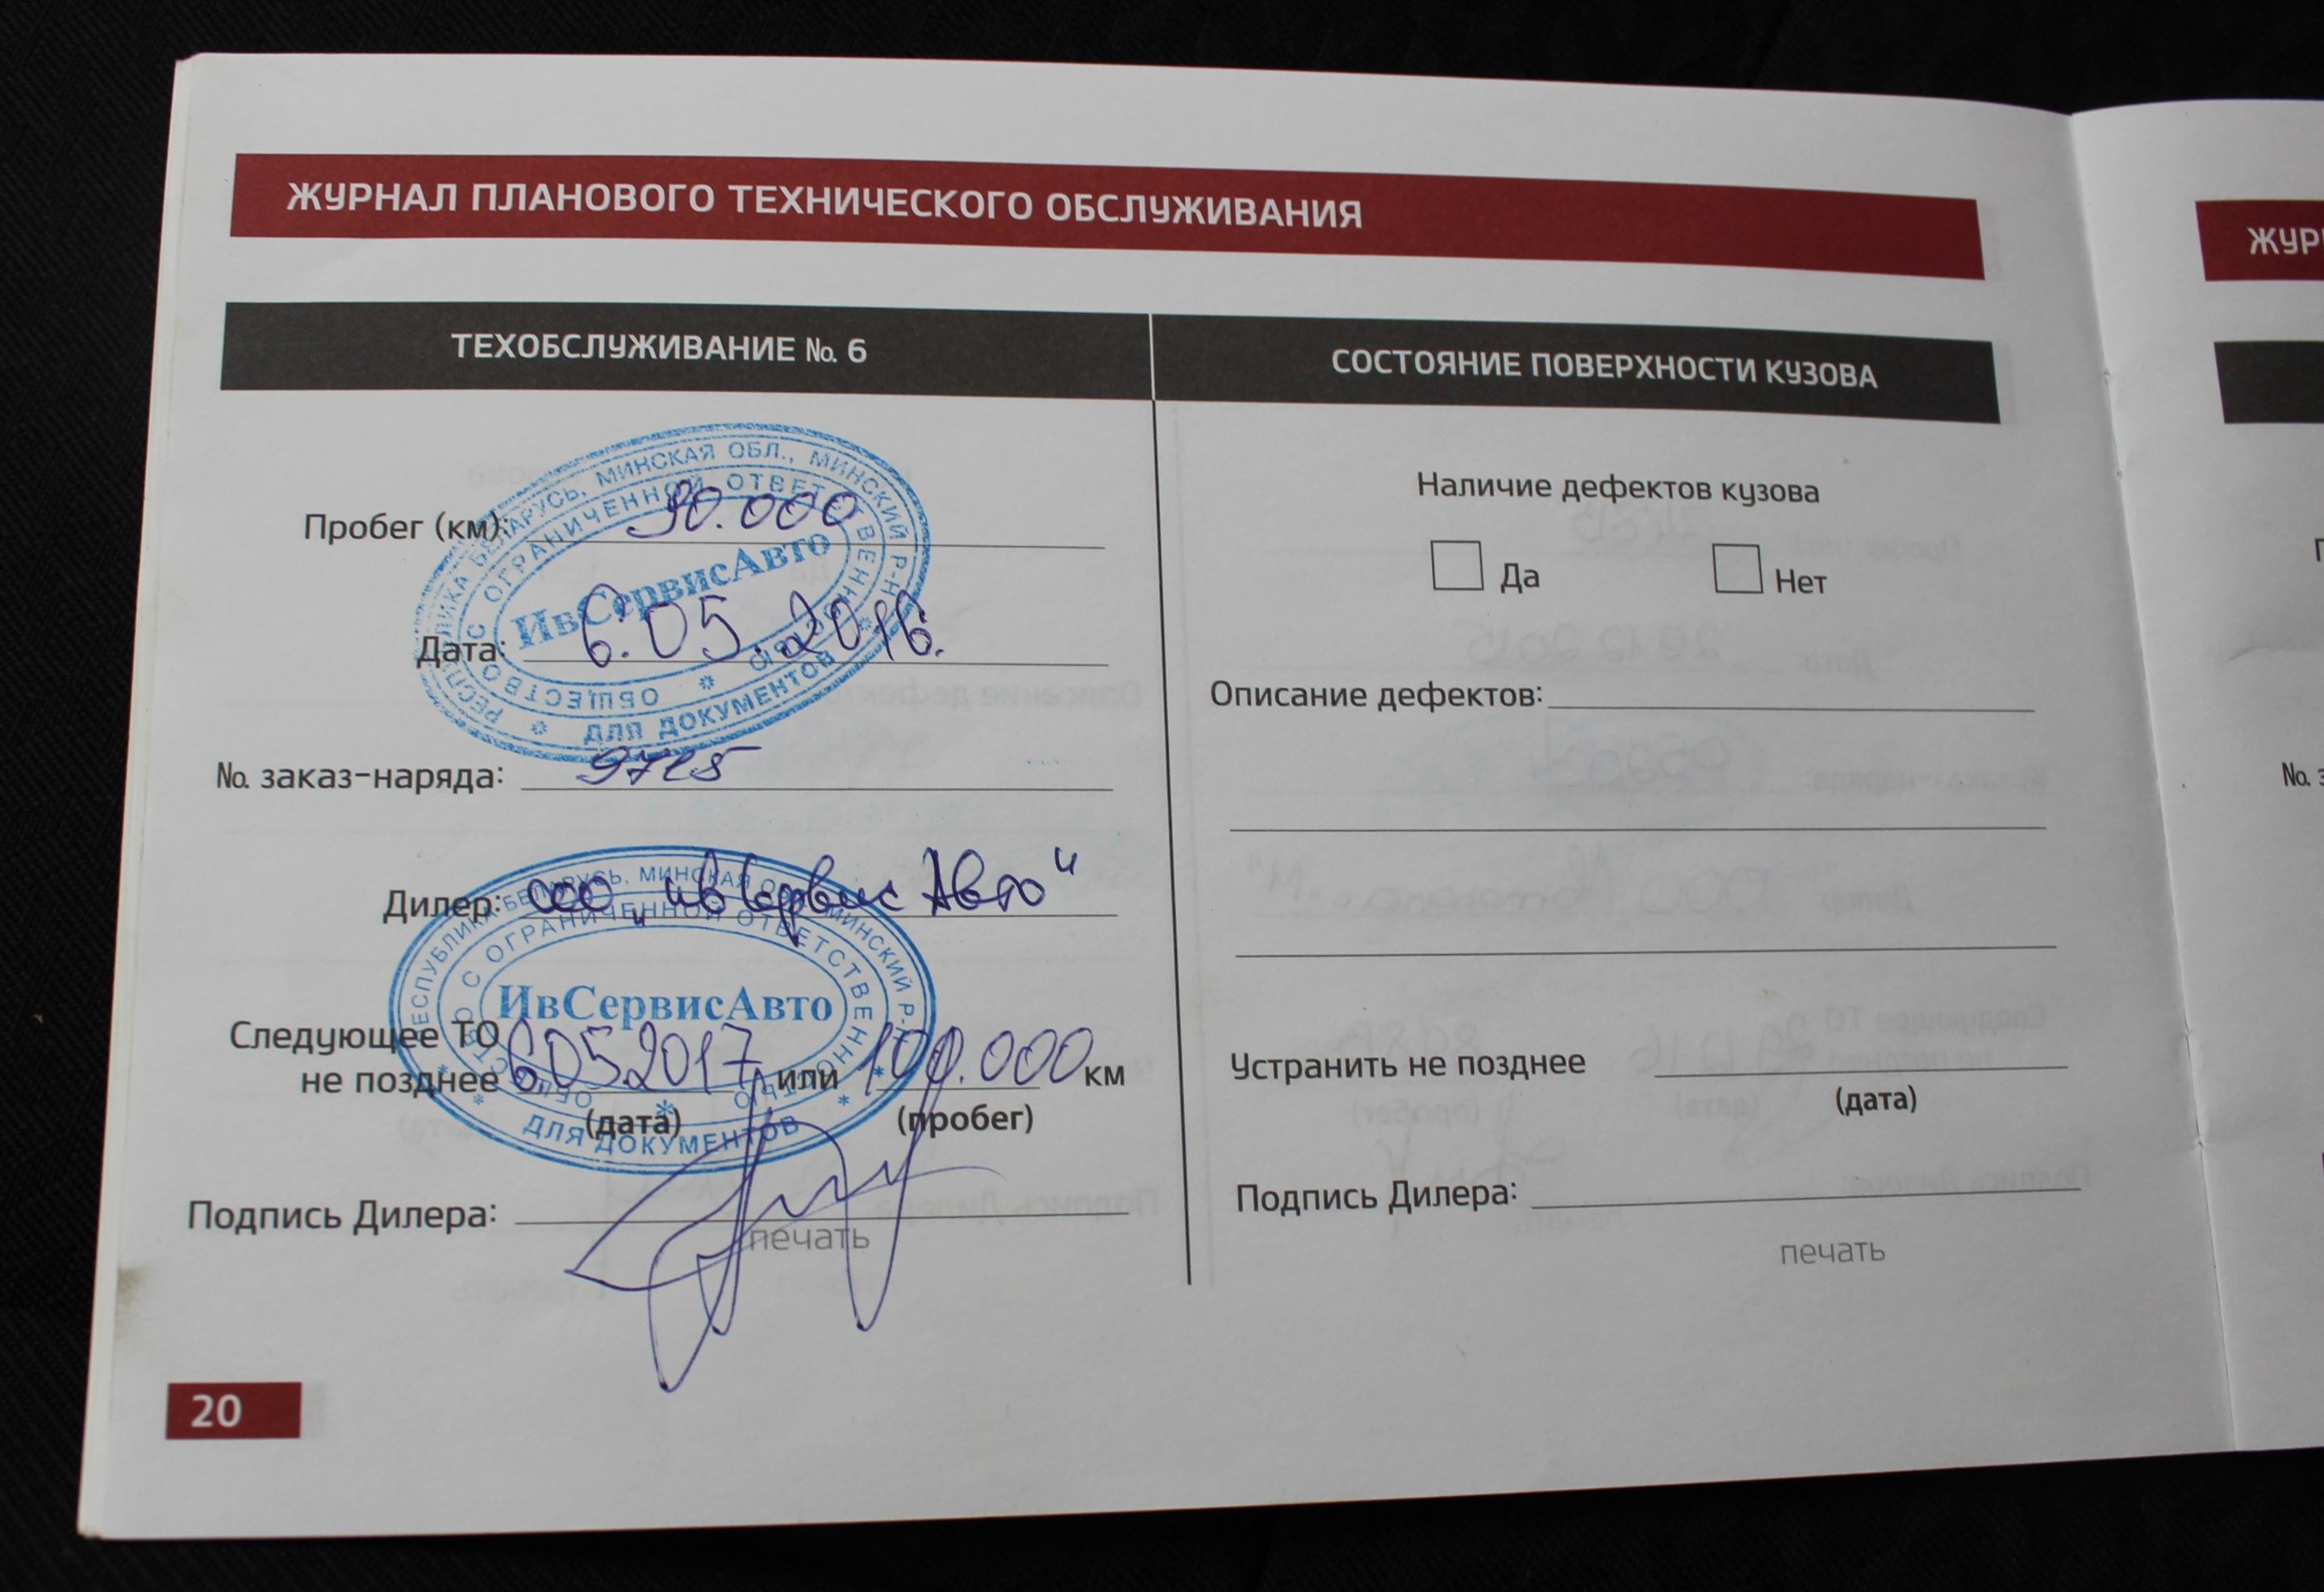 ЖУРНАЛ ПЛАНОВОГО ТЕХНИЧЕСКОГО ОБСЛУЖИВАНИЯ
ЖУР
ТЕХОБСЛУЖИВАНИЕ №. 6
СОСТОЯНИЕ ПОВЕРХНОСТИ КУЗОВА
Пробег (км): 90.000
Дата: 6.05.2016.
№. заказ-наряда: 9725
Дилер: ООО „ИвСервисАвто"
Следующее ТО
не позднее 6.05.2017 или 100.000 км
(дата) (пробег)
Подпись Дилера:
печать
РЕСПУБЛИКА БЕЛАРУСЬ, МИНСКАЯ ОБЛ., МИНСКИЙ Р-Н
ОБЩЕСТВО С ОГРАНИЧЕННОЙ ОТВЕТСТВЕННОСТЬЮ
ИвСервисАвто
ДЛЯ ДОКУМЕНТОВ
РЕСПУБЛИКА БЕЛАРУСЬ, МИНСКАЯ ОБЛ., МИНСКИЙ Р-Н
ОБЩЕСТВО С ОГРАНИЧЕННОЙ ОТВЕТСТВЕННОСТЬЮ
ИвСервисАвто
ДЛЯ ДОКУМЕНТОВ
Наличие дефектов кузова
Да Нет
Описание дефектов:
Устранить не позднее
(дата)
Подпись Дилера:
печать
№. з
20